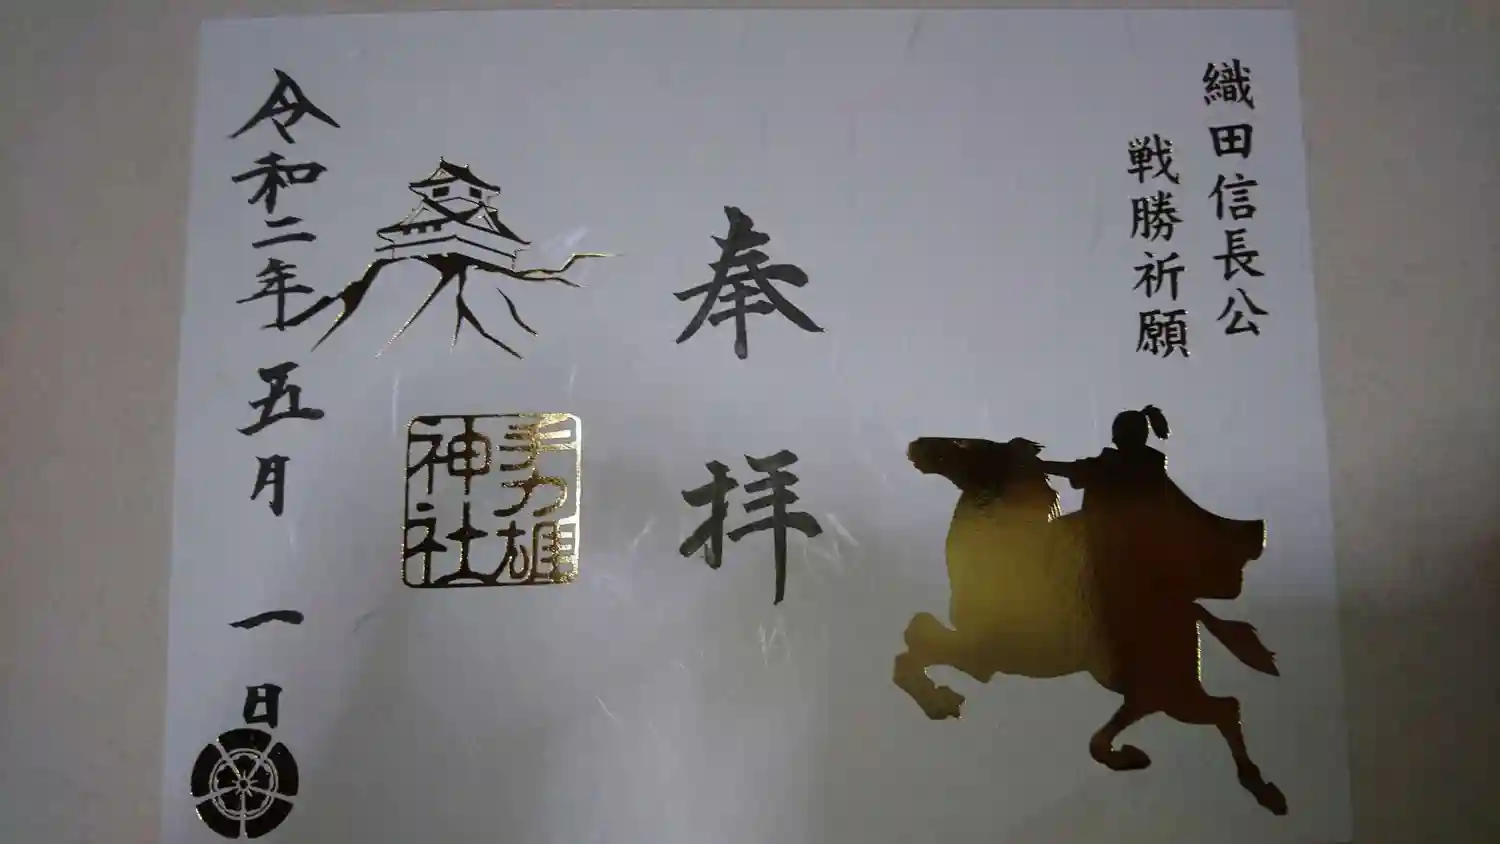 織田信長公
戦勝祈願
奉拝
手力雄
神社
令和二年五月一日